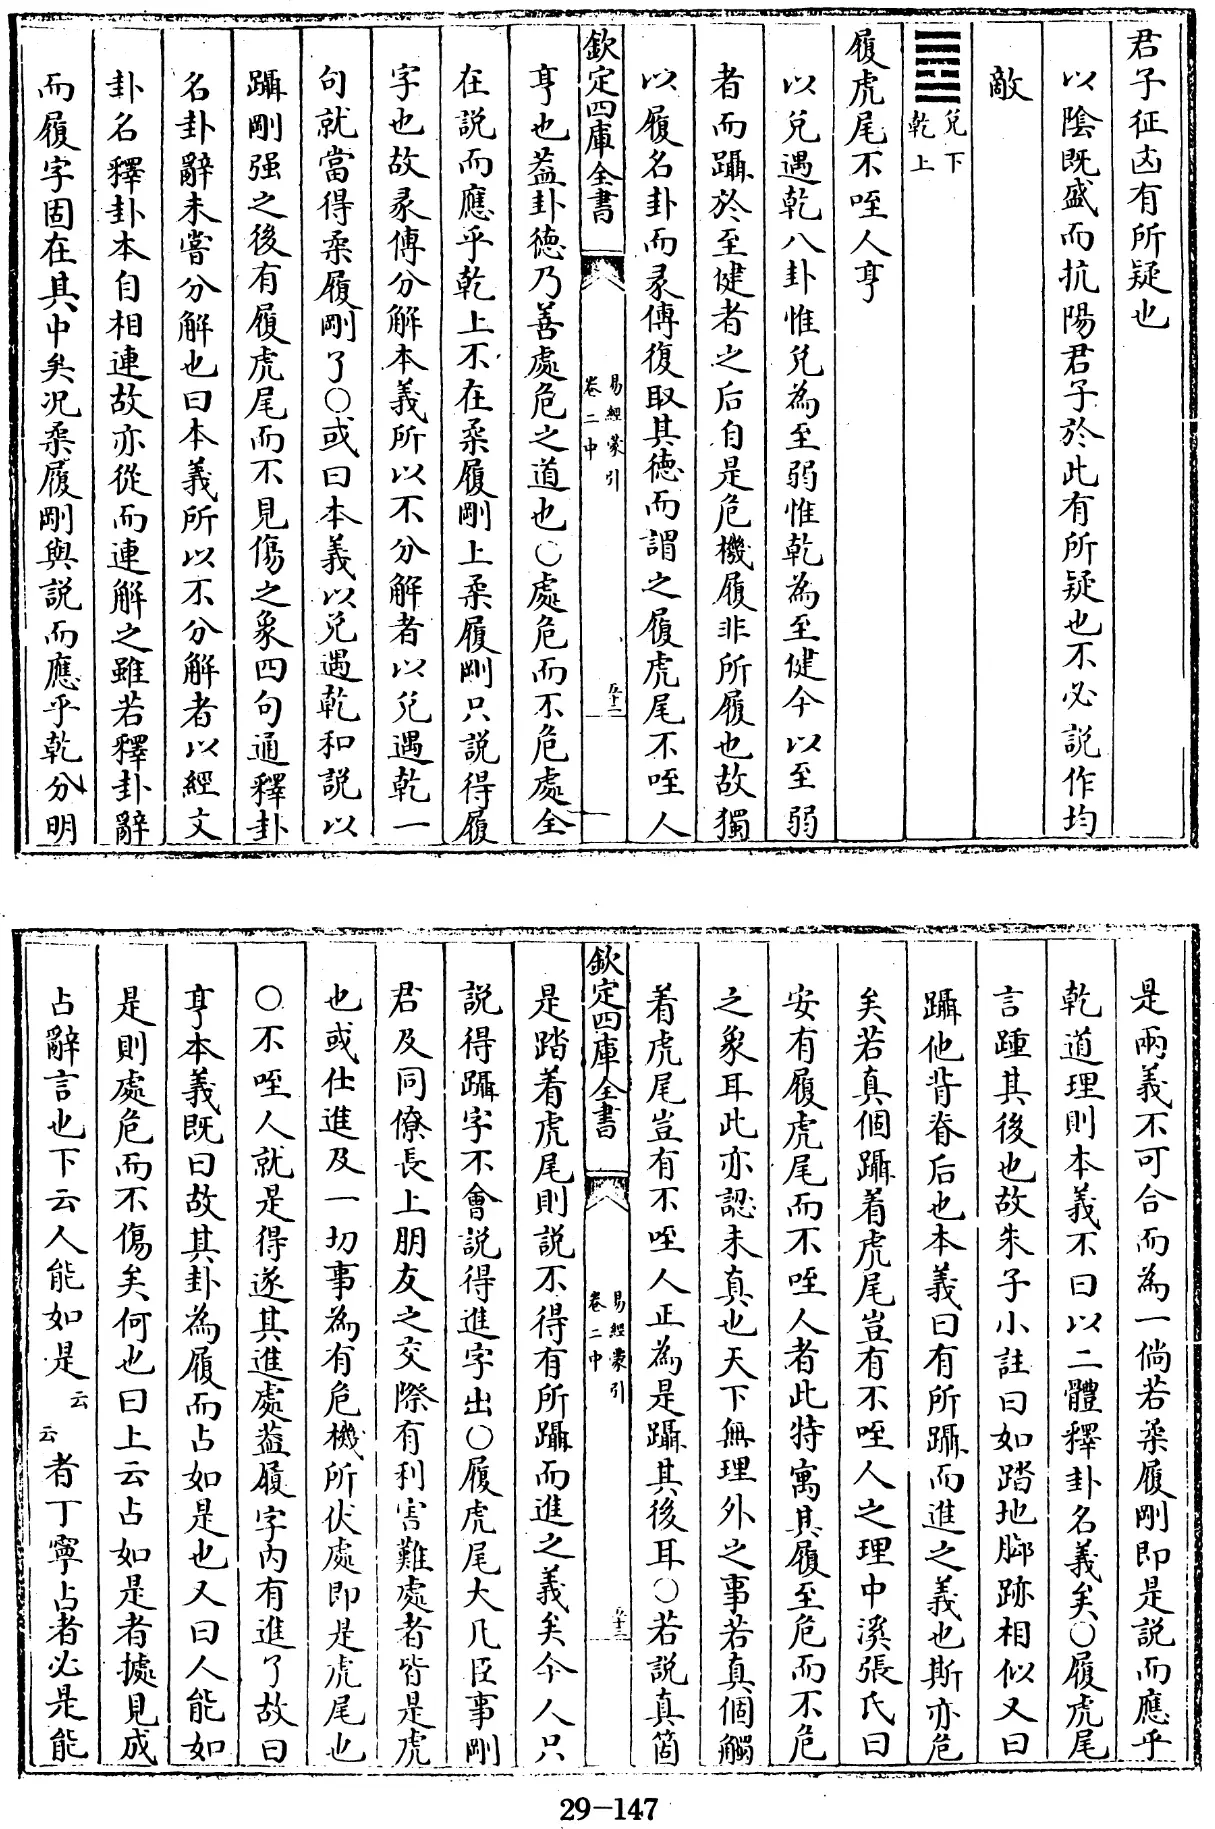 君子征凶有所疑也
以陰既盛而抗陽君子於此有所疑也不必説作均
敵
䷉兑下乾上
履虎尾不咥人亨
以兑遇乾八卦惟兑為至弱惟乾為至健今以至弱
者而躡於至健者之后自是危機履非所履也故獨
以履名卦而彖傳復取其德而謂之履虎尾不咥人
欽定四庫全書
易經蒙引
卷二中
五十二
亨也葢卦德乃善處危之道也○處危而不危處全
在説而應乎乾上不在柔履剛上柔履剛只説得履
字也故彖傳分解本義所以不分解者以兑遇乾一
句就當得柔履剛了○或曰本義以兑遇乾和説以
躡剛强之後有履虎尾而不見傷之象四句通釋卦
名卦辭未嘗分解也曰本義所以不分解者以經文
卦名釋卦本自相連故亦從而連解之雖若釋卦辭
而履字固在其中矣况柔履剛與説而應乎乾分明
是兩義不可合而為一倘若柔履剛即是説而應乎
乾道理則本義不曰以二體釋卦名義矣○履虎尾
言踵其後也故朱子小註曰如踏地脚跡相似又曰
躡他背脊后也本義曰有所躡而進之義也斯亦危
矣若真個躡着虎尾豈有不咥人之理中溪張氏曰
安有履虎尾而不咥人者此特寓其履至危而不危
之象耳此亦認未真也天下無理外之事若真個觸
着虎尾豈有不咥人正為是躡其後耳○若説真箇
欽定四庫全書
易經蒙引
卷二中
五十三
是踏着虎尾則説不得有所躡而進之義矣今人只
説得躡字不會説得進字出○履虎尾大凡臣事剛
君及同僚長上朋友之交際有利害難處者皆是虎
也或仕進及一切事為有危機所伏處即是虎尾也
○不咥人就是得遂其進處葢履字內有進了故曰
亨本義既曰故其卦為履而占如是也又曰人能如
是則處危而不傷矣何也曰上云占如是者據見成
占辭言也下云人能如是云云者丁寧占者必是能
29-147